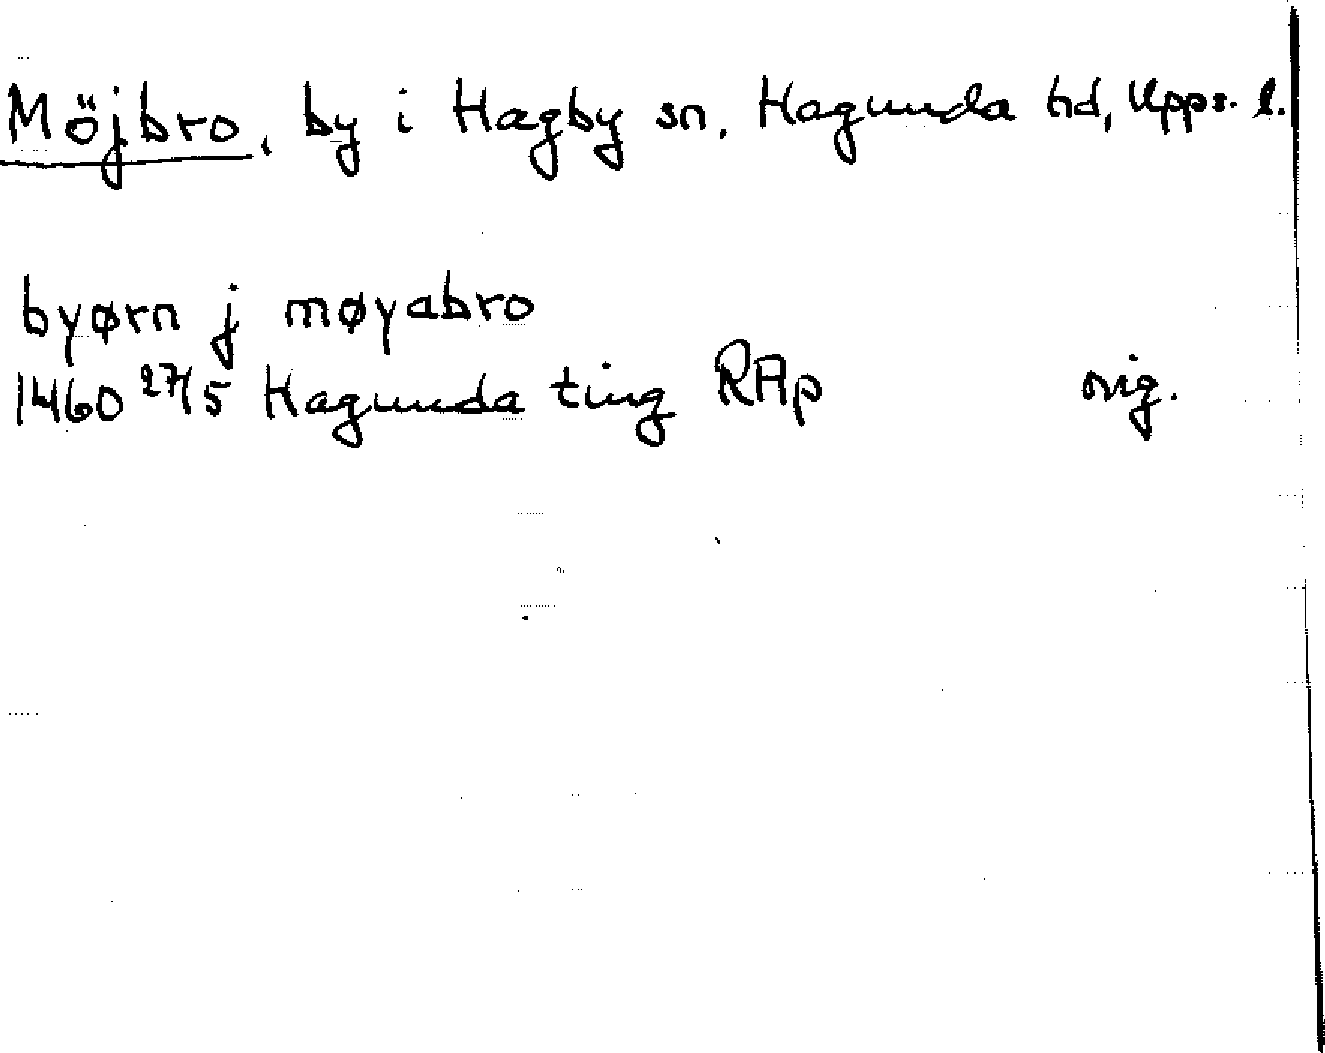 Möjbro, by i Hagby sn, Hagunda hd, Upps. l.
byørn j møyabro
1460 27/5 Hagunda ting RAp orig.